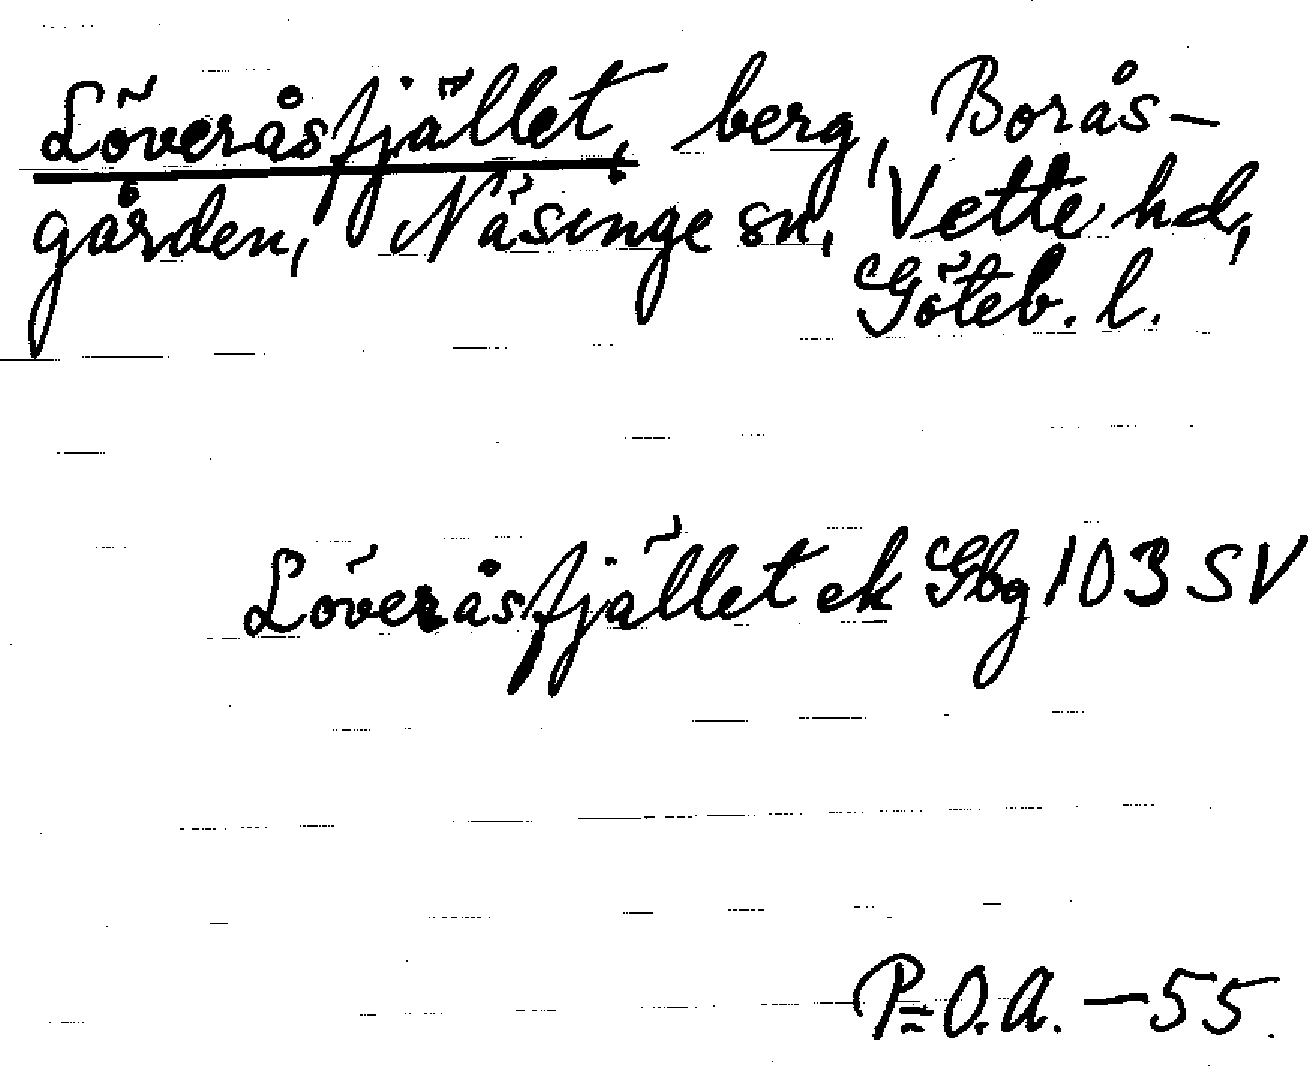 Löveråsfjället, berg, Borås-
gården, Näsinge sn, Vette hd,
Göteb. l.
Löveråsfjället ek Gbg 103 SV
P=O.A. -55.